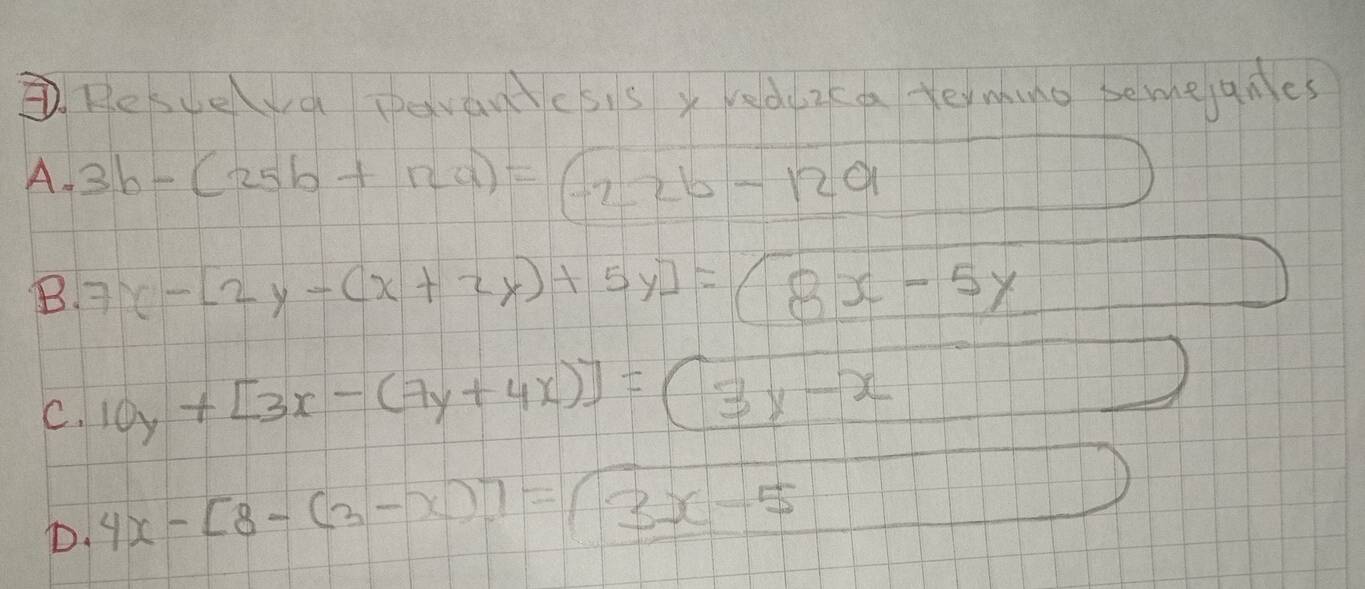 3. Resuelva parantesis y reduzca termino semejantes
A. 3b - (25b + 12a) = -22b - 12a
B. 7x - [2y - (x + 2y) + 5y] = 8x - 5y
C. 10y + [3x - (7y + 4x)] = 3y - x
D. 4x - [8 - (3 - x)] = 3x - 5